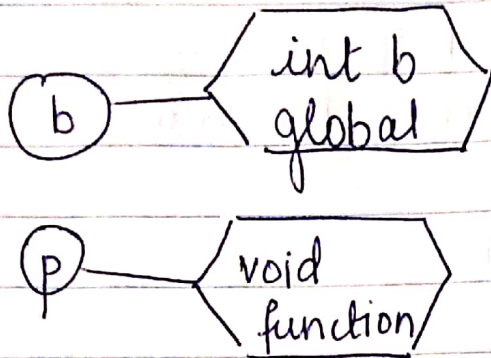 b
int b
global
p
void
function